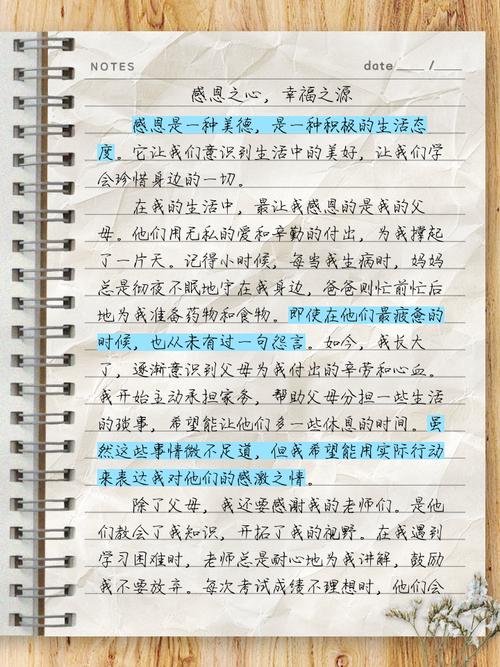 NOTES
date ____ / ___
感恩之心，幸福之源
感恩是一种美德，是一种积极的生活态
度。它让我们意识到生活中的美好，让我们学
会珍惜身边的一切。
在我的生活中，最让我感恩的是我的父
母。他们用无私的爱和辛勤的付出，为我撑起
了一片天。记得小时候，每当我生病时，妈妈
总是彻夜不眠地守在我身边，爸爸则忙前忙后
地为我准备药物和食物。即使在他们最疲惫的
时候，也从未有过一句怨言。如今，我长大
了，逐渐意识到父母为我付出的辛劳和心血。
我开始主动承担家务，帮助父母分担一些生活
的琐事，希望能让他们多一些休息的时间。虽
然这些事情微不足道，但我希望能用实际行动
来表达我对他们的感激之情。
除了父母，我还要感谢我的老师们。是他
们教会了我知识，开拓了我的视野。在我遇到
学习困难时，老师总是耐心地为我讲解，鼓励
我不要放弃。每次考试成绩不理想时，他们会